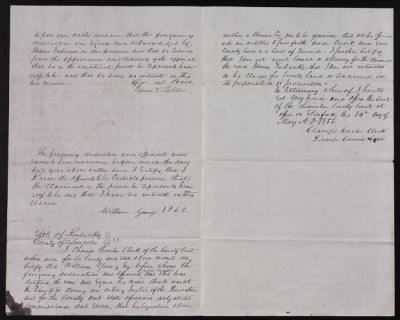 upon our oaths declare that the foregoing
declaration was signed and acknowledged by
in our presence and that we believe
from the appearance and statements of the applicant
that he is the identical person he represents him
self to be and that we have no interest in this
his claim
The foregoing declaration and affidavit were
sworn to and subscribed before me on the day
and year above written and I certify that I
know the affiants to be credible persons that
the claimant is the person he represents him
self to be and that I have no interest in this
claim
William Young J P L C
State of Kentucky
County of Lincoln
I Champ Carter Clerk of the County Court
within and for the County and State above named do
certify that William Young by before whom the
foregoing declaration and affidavit
certified the same and signed his name thereto was at
the time of so doing an acting Justice of the Peace
and for the County and State aforesaid duly elected
commissioned and sworn, that his signature above
within is known by me to be genuine that all his official
acts are entitled to full faith and Credit and said
County have a Court of Record. I further certify
that I am not agent Counsel or attorney for the
said and that I am not interested
in his claim for bounty land or concerned in
its preparation or
In testimony whereof I
set my hand and affix the seal
of the Lincoln County Court at
office in Stanford this 14th day of
May A D 1855
Champ Carter Clerk
Lincoln County Court